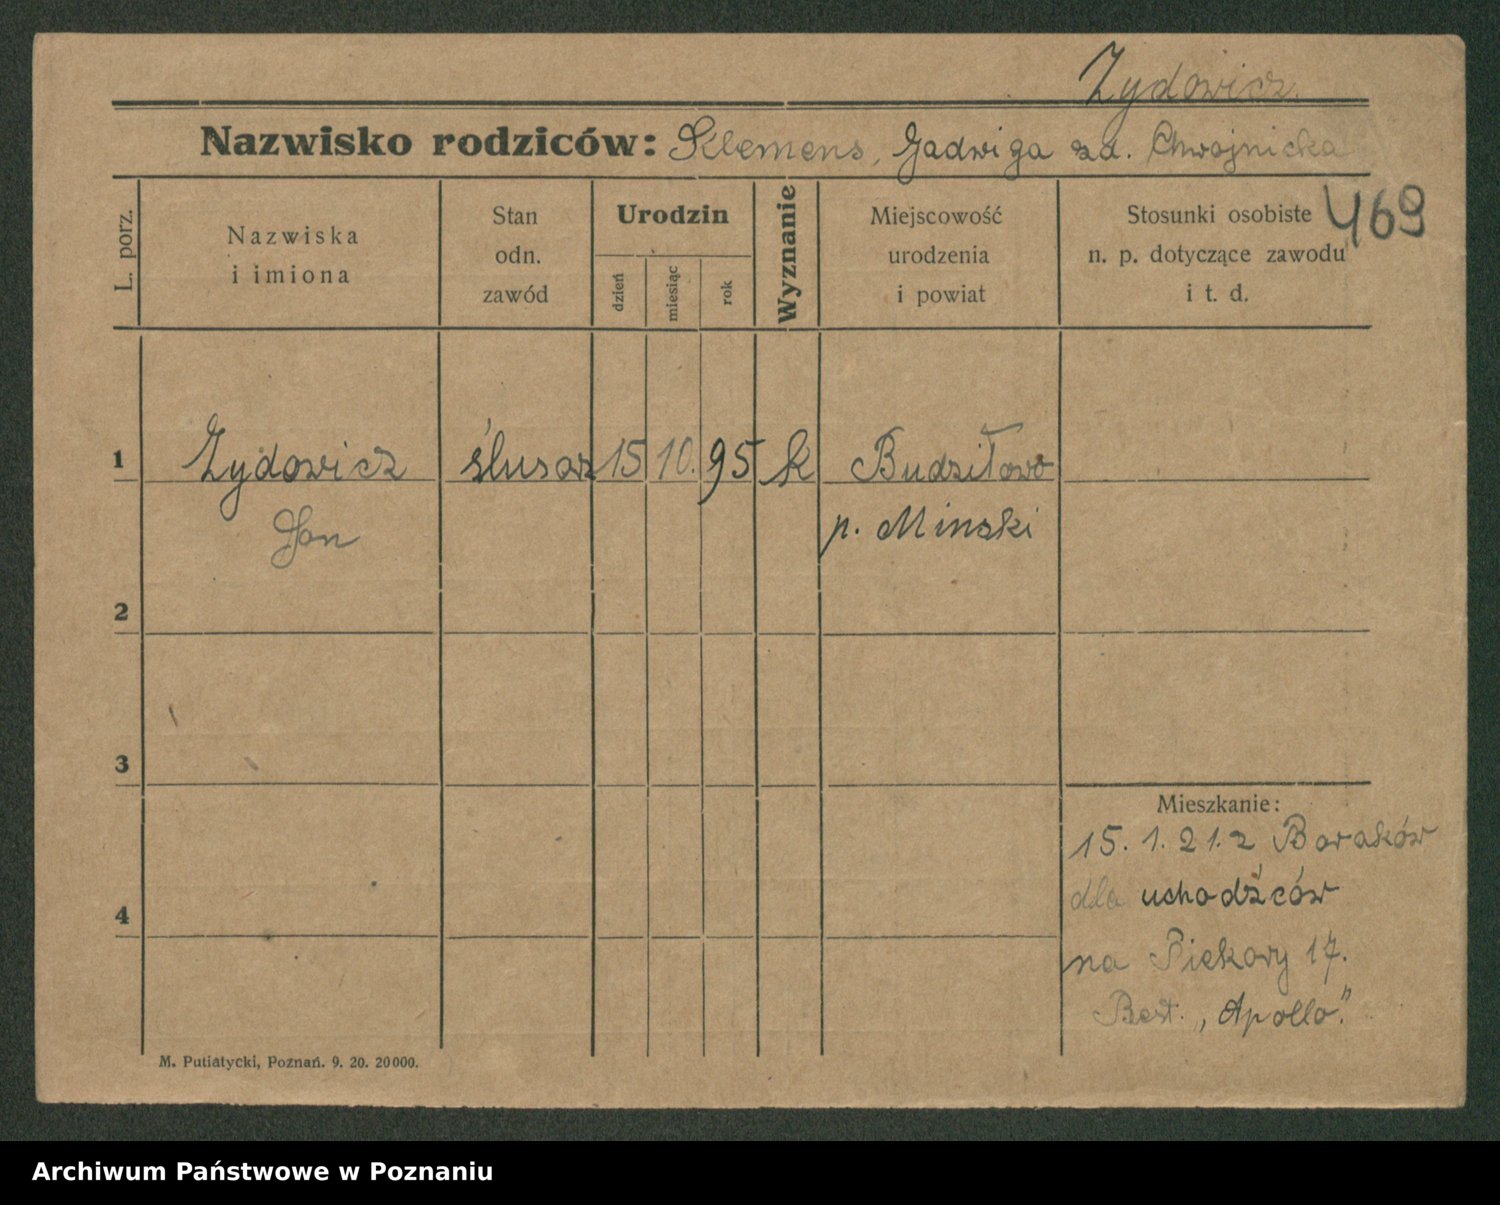 Zydowicz.
Nazwisko rodziców: Klemens, Jadwiga zd. Chwojnicka
469
L. porz.
Nazwiska
i imiona
Stan
odn.
zawód
Urodzin
dzień
miesiąc
rok
Wyznanie
Miejscowość
urodzenia
i powiat
Stosunki osobiste
n. p. dotyczące zawodu
i t. d.
1 Zydowicz ślusarz 15 10. 95 k Budziłowo
Jan p. Minski
2
3
4
Mieszkanie:
15. 1. 21. z Baraków
dla uchodźców
na Piekary 17.
Rest. „Apollo."
M. Putiatycki, Poznań. 9. 20. 20000.
Archiwum Państwowe w Poznaniu